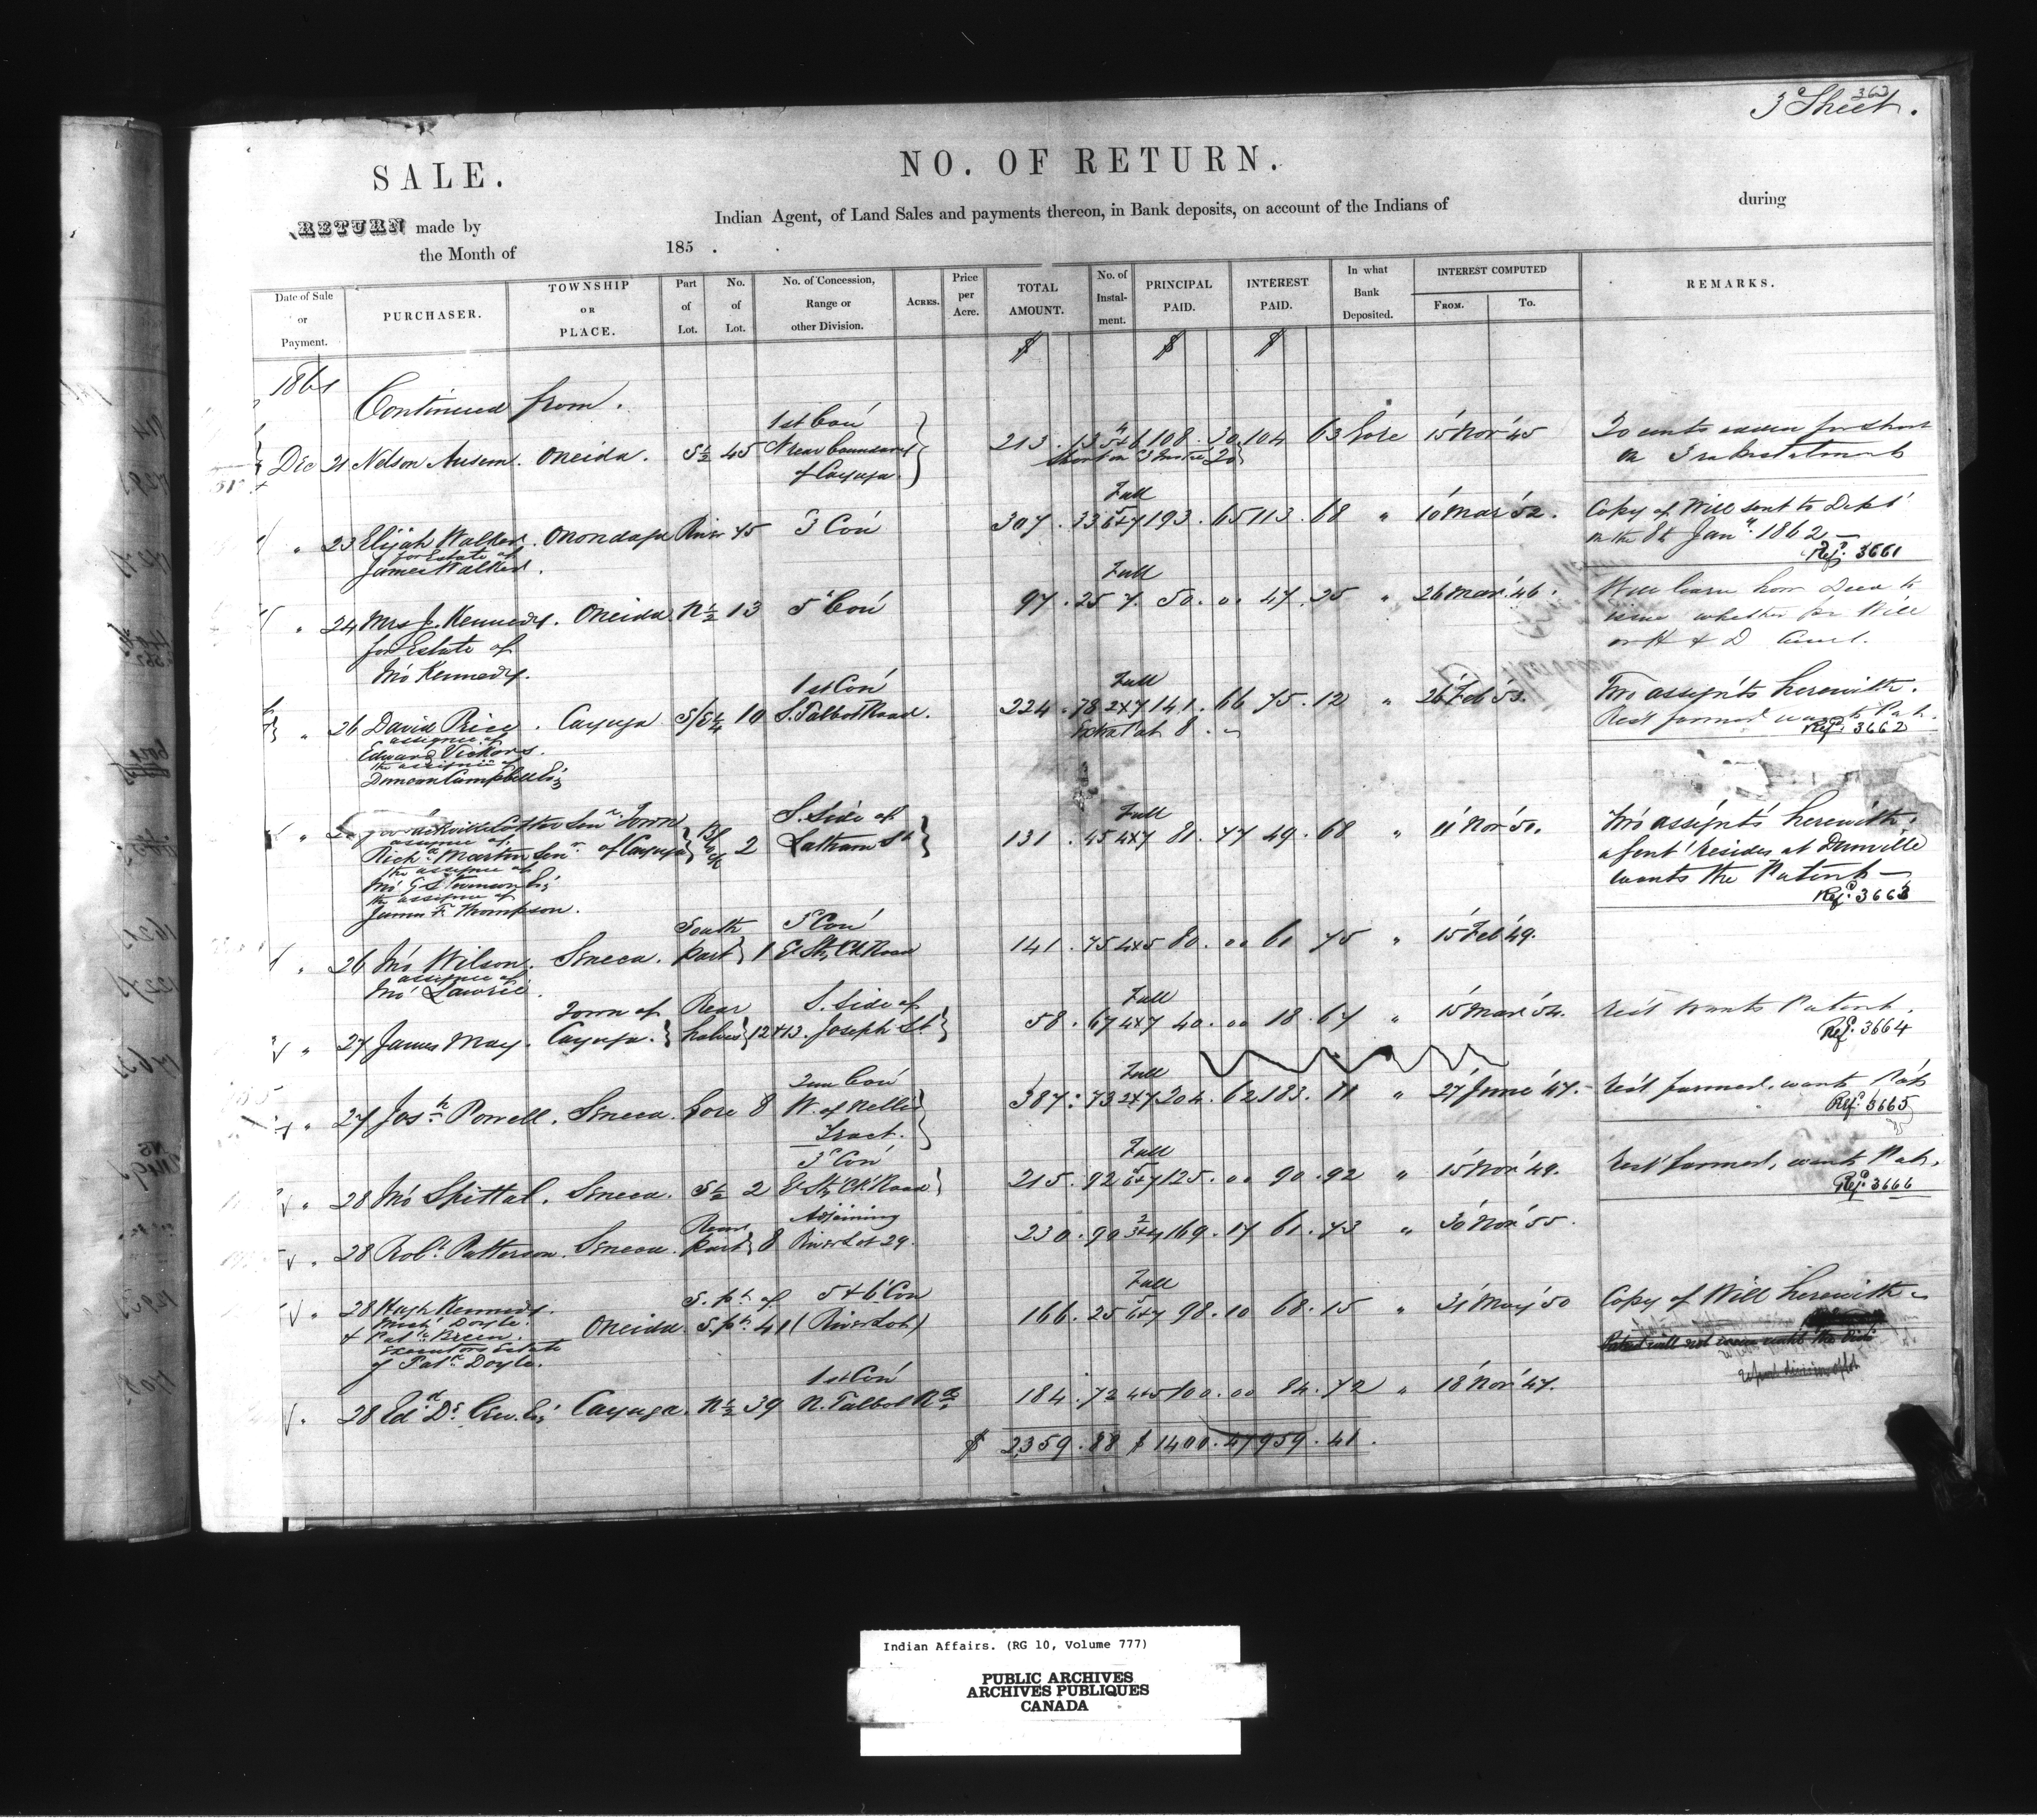 363
3d Sheet.
SALE.
NO. OF RETURN.
RETURN made by Indian Agent, of Land Sales and payments thereon, in Bank deposits, on account of the Indians of during
the Month of 185 .
Date of Sale or Payment. PURCHASER. TOWNSHIP OR PLACE. Part of Lot. No. of Lot. No. of Concession, Range or other Division. ACRES. Price per Acre. TOTAL AMOUNT. No. of Instalment. PRINCIPAL PAID. INTEREST PAID. In what Bank Deposited. INTEREST COMPUTED FROM. To. REMARKS.
$ $ $
1861
Continued from .
1st Con
Dec 21 Nelson Ausem. Oneida. S½ 45 N near boundary 213 . 13 4 5+6 108 . 30 104 63 Gore 15 Nov '45 20 cents excess for short
of Cayuga. short on 3 Inst 20 on 3rd Instalment
Full
" 23 Elijah Walker. Onondaga River 45 3 Con 307 . 33 5 6+7 193 . 65 113 . 68 " 10 Mar '52. Copy of Will sent to Dept
for Estate of on the 8th Jany 1862
James Walker. Ref. 3661
Full
" 24 Mrs J. Kennedy. Oneida N½ 13 5 Con 97 . 25 7. 50 . 00 47 . 25 " 26 Mar '46. Will learn how Deed to
for Estate of issue whether per Will
Jno Kennedy. or H & D
1st Con Full
" 26 David Price. Cayuga S/E¼ 10 S. Talbot Road. 224 . 78 2x7 141 . 66 75 . 12 " 26 Feb '53. Two assignts herewith.
assignee of Extra Pat 8 . Rest farmed wants Pat.
Edward Vickers. Ref. 3662
the assignee of
Duncan Campbell Esq
S. Side of Full
" Cotter Senr Town of Cayuga Block 2 Latham St 131 . 45 4x7 81 . 77 49 . 68 " 11 Nov '50. Two assignts herewith.
assignee of agent resides at Dunnville
Richd Martin Senr wants the Patent
the assignee of Ref. 3663
Jno G Stevenson Esq
the assignee of
James F. Thompson.
South 3 Con
" 26 Jno Wilson. Seneca. part 1 E. Sty Ck Road 141 . 75 4x5 80 . 00 61 75 " 15 Feb '49.
assignee of
Jno Lawrie.
Town of Rear S. Side of Full
" 27 James May. Cayuga. halves 12&13. Joseph St. 58 . 67 4x7 40 . 00 18 . 67 " 15 Mar '54. Rest wants Patent.
Ref. 3664
2nd Con Full
" 27 Josh Powell. Seneca. Gore 8 W. of Nelles 387 . 73 2x7 204 . 62 183 . 11 " 27 June '47. Rest farmed, wants Pat
Tract. Ref. 3665
3 Con Full
" 28 Jno Spittal. Seneca. S½ 2 E Sty Ck Road 215 . 92 5 6+7 125 . 00 90 . 92 " 15 Nov '49. Rest farmed, wants Pat.
Ref. 3666
Rear Adjoining
" 28 Robt Patterson. Seneca. part 8 River Lot 29. 230 . 90 2 3+4 169 . 17 61 . 73 " 30 Nov '55.
S. pt of 5 & 6 Con Full
" 28 Hugh Kennedy. Oneida S. pt 41 (River Lot) 166 . 25 5 6+7 98 . 10 68 . 15 " 31 May '50 Copy of Will herewith
Michl Doyle. Patent will not issue until the
& Patk Breen.
Executors Estate
of Patk Doyle.
1st Con
" 28 Edd De Cew. Esq Cayuga. N½ 39 N. Talbot Rd. 184 . 72 4x5 100 . 00 84 . 72 " 18 Nov '47.
$ 2359 . 88 $ 1400 . 47 959 . 41 .
Indian Affairs. (RG 10, Volume 777)
PUBLIC ARCHIVES
ARCHIVES PUBLIQUES
CANADA